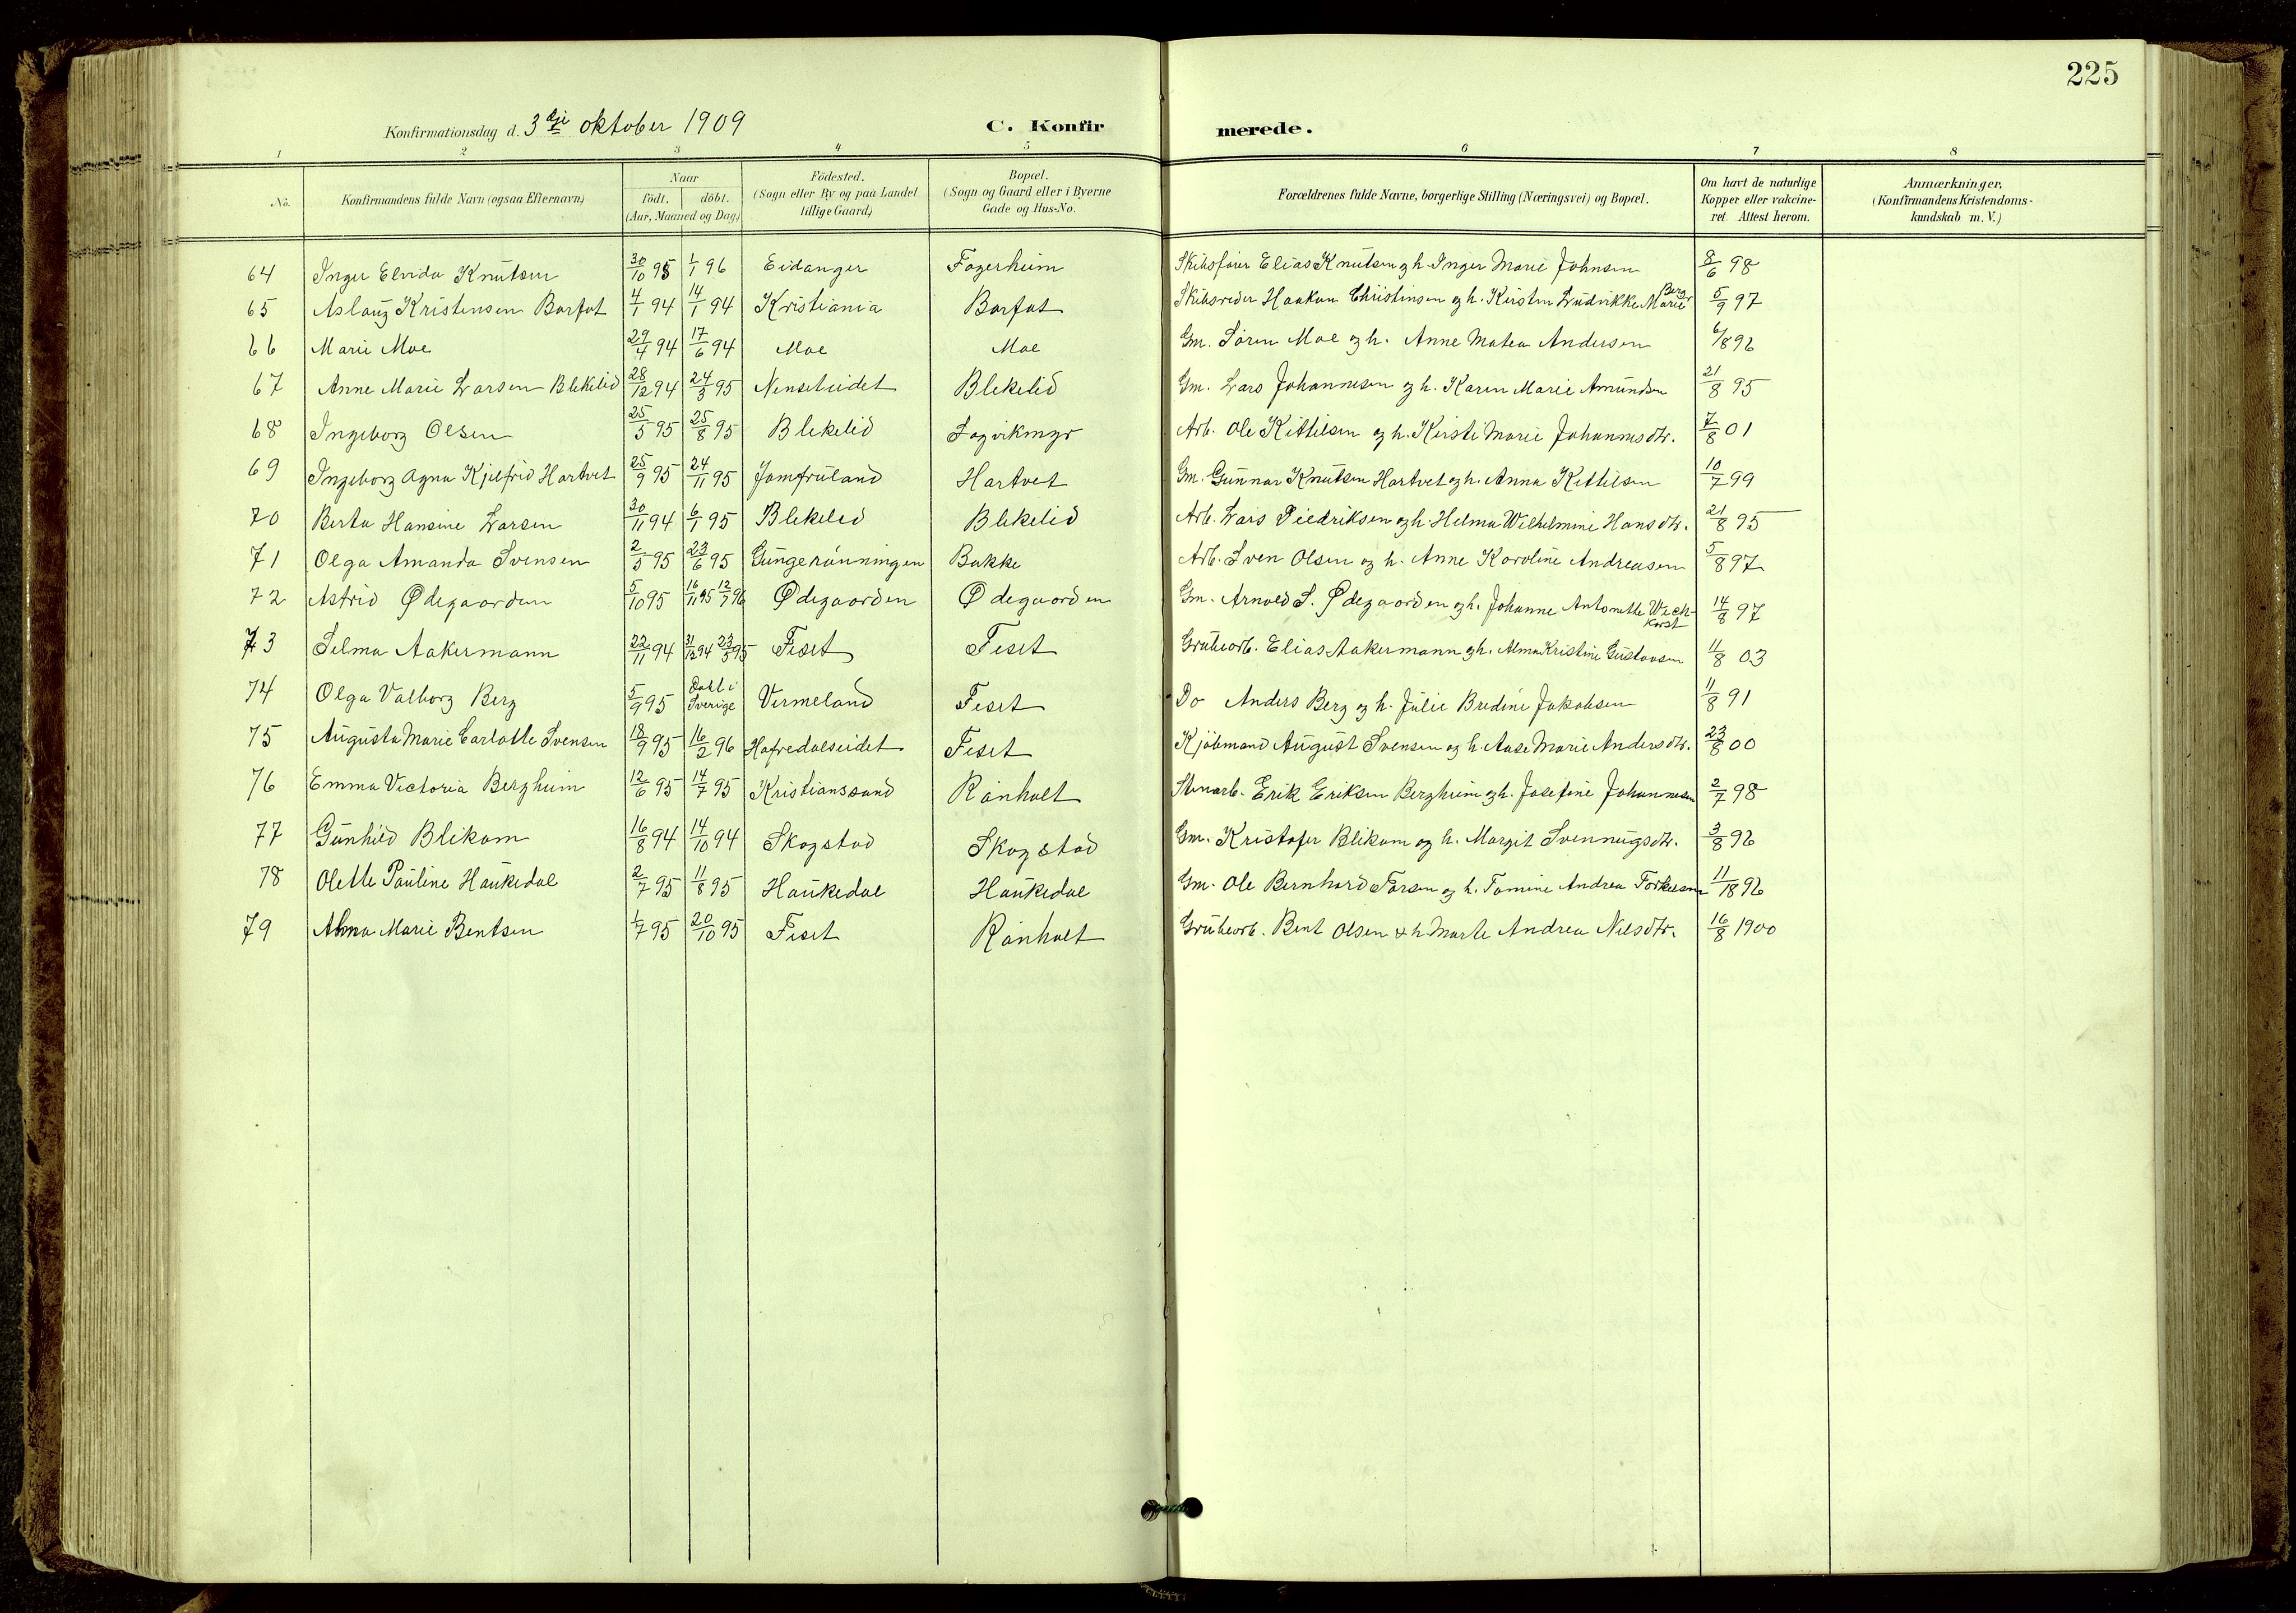 225
Konfirmationsdag d. 3dji oktober 1909 C. Konfirmerede.
1 2 3 4 5 6 7 8
No. Konfirmandens fulde Navn (ogsaa Efternavn) Naar födt. döbt. (Aar, Maaned og Dag) Födested. (Sogn eller By og paa Landet tillige Gaard) Bopæl. (Sogn og Gaard eller i Byerne Gade og Hus-No. Forældrenes fulde Navne, borgerlige Stilling (Næringsvei) og Bopæl. Om havt de naturlige Kopper eller vakcineret. Attest herom. Anmærkninger. (Konfirmandens Kristendomskundskab m. V.)
64 Inger Elvida Knutsen 30/10 95 1/1 96 Eidanger Fagerheim Skibsfører Elias Knutsen og h. Inger Marie Johnsen 8/6 98
65 Aslaug Kristensen Barfot 4/1 94 14/1 94 Kristiania Barfot Skibsreder Haakon Christensen og h. Kirsten Ludvikke Marie Berg 5/9 97
66 Marie Moe 29/4 94 17/6 94 Moe Moe Gm. Søren Moe og h. Anne Matea Andersen 6/8 96
67 Anne Marie Larsen Blekelid 28/12 94 24/3 95 Nenseteidet Blekelid Gm. Lars Johannesen og h. Karen Marie Amundsen 21/8 95
68 Ingeborg Olsen 25/5 95 25/8 95 Blekelid Sagvikmyr Arb. Ole Kittilsen og h. Kirsti Marie Johannesdtr. 7/8 01
69 Ingeborg Agna Kjelfrid Hartvet 25/9 95 24/11 95 Jomfruland Hartvet Gm. Gunnar Knutsen Hartvet og h. Anna Kittilsen 10/7 99
70 Berta Hansine Larsen 30/11 94 6/1 95 Blekelid Blekelid Arb. Lars Diedriksen og h. Helma Wilhelmine Hansdtr. 21/8 95
71 Olga Amanda Svensen 2/5 95 23/6 95 Gungerönningen Bakke Arb. Sven Olsen og h. Anne Karoline Andreasen 5/8 97
72 Astrid Ødegaarden 5/10 95 16/11 95 12/7 96 Ødegaarden Ødegaarden Gm. Arnold S. Ødegaarden og h. Johanne Antonette 14/8 97
73 Selma Aakermann 22/11 94 31/12 94 23/5 95 Feset Feset Grubearb. Elias Aakermann og h. Alma Kristine Gustavsen 11/8 03
74 Olga Valborg Berg 5/9 95 Døbt i Sverige Vermeland Feset Do Anders Berg og h. Julie Bredine Jakobsen 11/8 91
75 Augusta Marie Carlotte Svensen 18/9 95 16/2 96 Hafredalseidet Feset Kjöbmand August Svensen og h. Aase Marie Andersdtr. 23/8 00
76 Emma Victoria Bergheim 12/6 95 14/7 95 Kristianssand Rönholt Stenarb. Erik Eriksen Bergheim og h. Josefine Johannesen 2/7 98
77 Gunhild Blikom 16/8 94 14/10 94 Skogstad Skogstad Gm. Kristofer Blikom og h. Margit Svennugsdtr. 3/8 96
78 Olette Pauline Haukedal 2/7 95 11/8 95 Haukedal Haukedal Gm. Ole Bernhard Torsen og h. Tomine Andrea Torkelsen 11/18 96
79 Anna Marie Bentsen 1/7 95 20/10 95 Feset Rönholt Grubearb. Bent Olsen & h. Marte Andrea Nilsdtr. 16/8 1900